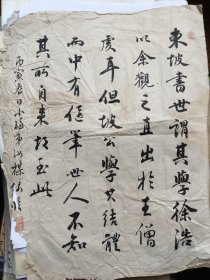 東坡書世謂其學徐浩
以余觀之直出於王僧
虔耳但坡公學其結體
而中有偃筆世人不知
其所自來故云此
丙寅春日小